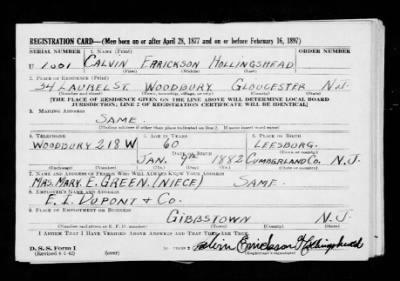 REGISTRATION CARD—(Men born on or after April 28, 1877 and on or before February 16, 1897)
SERIAL NUMBER 1. NAME (Print) ORDER NUMBER
U 1001 CALVIN ERRICKSON HOLLINGSHEAD
(First) (Middle) (Last)
2. PLACE OF RESIDENCE (Print)
34 LAUREL ST. WOODBURY GLOUCESTER N.J.
(Number and street) (Town, township, village, or city) (County) (State)
[THE PLACE OF RESIDENCE GIVEN ON THE LINE ABOVE WILL DETERMINE LOCAL BOARD
JURISDICTION; LINE 2 OF REGISTRATION CERTIFICATE WILL BE IDENTICAL]
3. MAILING ADDRESS
SAME.
[Mailing address if other than place indicated on line 2. If same insert word same]
4. TELEPHONE 5. AGE IN YEARS 6. PLACE OF BIRTH
WOODBURY 218 W 60 LEESBURG.
DATE OF BIRTH
JAN. 9TH 1882 CUMBERLAND CO. N.J.
(Exchange) (Number) (Mo.) (Day) (Yr.) (State or country)
7. NAME AND ADDRESS OF PERSON WHO WILL ALWAYS KNOW YOUR ADDRESS
MRS. MARY. E. GREEN. (NIECE) SAME.
8. EMPLOYER'S NAME AND ADDRESS
E. I. DUPONT & CO.
9. PLACE OF EMPLOYMENT OR BUSINESS
GIBBSTOWN N.J.
(Number and street or R. F. D. number) (Town) (County) (State)
I AFFIRM THAT I HAVE VERIFIED ABOVE ANSWERS AND THAT THEY ARE TRUE.
D. S. S. Form 1
(Revised 4-1-42) (over) Calvin Errickson Hollingshead
(Registrant's signature)